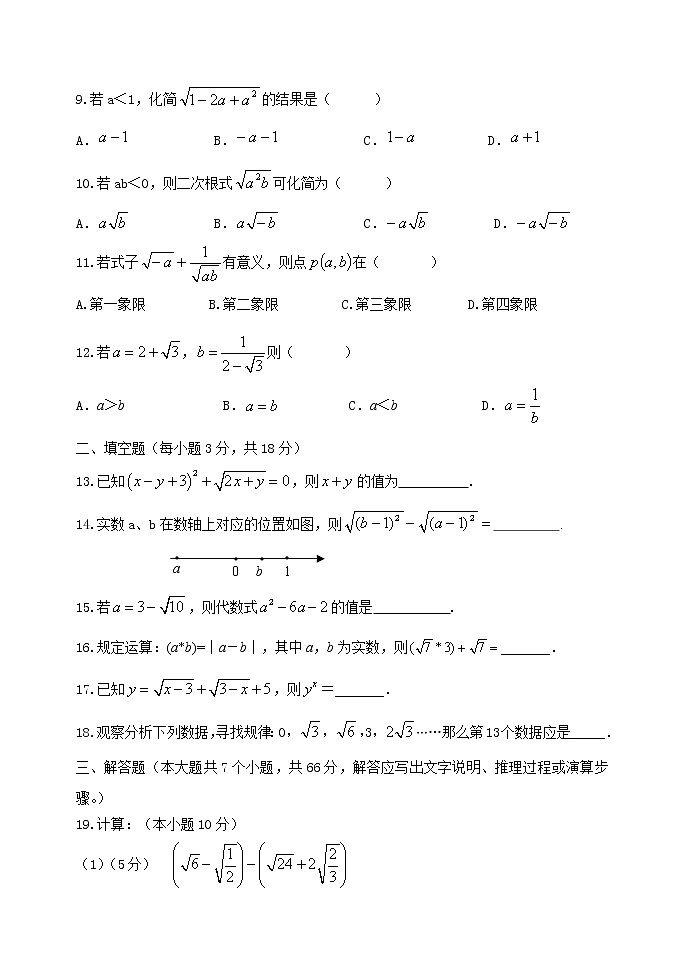 9.若a＜1,化简√(1−2a+a²)的结果是（ ）
A. a−1 B. −a−1 C. 1−a D. a+1
10.若ab＜0,则二次根式√(a²b)可化简为（ ）
A. a√b B. a√(−b) C. −a√b D. −a√(−b)
11.若式子√(−a)+1/√(ab)有意义,则点p(a,b)在（ ）
A.第一象限 B.第二象限 C.第三象限 D.第四象限
12.若a=2+√3, b=1/(2−√3)则（ ）
A. a＞b B. a=b C. a＜b D. a=1/b
二、填空题(每小题3分,共18分)
13.已知(x−y+3)²+√(2x+y)=0,则x+y的值为__________.
14.实数a、b在数轴上对应的位置如图,则√((b−1)²)−√((a−1)²)=__________.
a 0 b 1
15.若a=3−√10,则代数式a²−6a−2的值是___________.
16.规定运算:(a*b)=｜a－b｜,其中a，b为实数,则(√7*3)+√7=_______.
17.已知y=√(x−3)+√(3−x)+5,则yˣ＝_______.
18.观察分析下列数据,寻找规律:0,√3,√6,3,2√3……那么第13个数据应是_____.
三、解答题(本大题共7个小题,共66分,解答应写出文字说明、推理过程或演算步
骤。)
19.计算:(本小题10分)
(1)(5分) (√6−√(1/2))−(√24+2√(2/3))